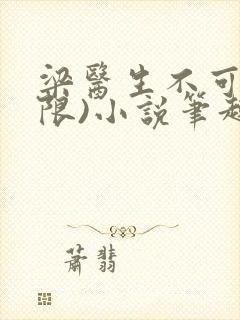 梁醫生不可
限)小說筆趣
蕭翡